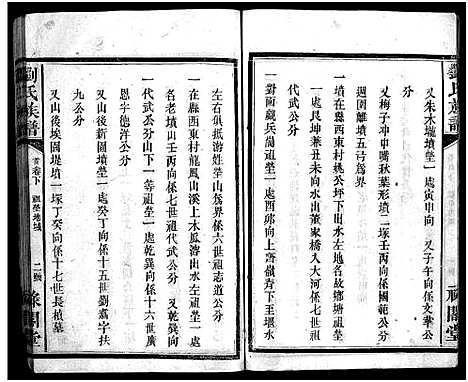 劉氏族譜
又朱木壠墳塋一處寅甲向 又子午向係文華公
分
又梅子冲中嘴秋葉形墳二塚壬丙向係國範公分
週圍離墳五弓爲界
一墳在縣西東村姚公坪下出水左地名故鄉塘祖塋
一處艮坤兼丑未向水出董家橋入大河係七世祖
代武公分
一對面觀兵崗祖塋一處酉卯向上至嶺脊下至堰水
左右俱抵游姓塋山爲界係六世祖志道公分
一在縣西東村龍鳳山溪上木瓜灣出水左祖塋一處
名老墳山壬丙向係七世祖代武公分 又乾巽向係
代武公分山下一等祖塋一處乾巽向係十六世廣
恩字德洋公分
又山後新園墳塋一處丁癸向係十五世劉嘉字扶
九公分
又山後埃園堤墳一塚丁癸向係十七世長楨墓
劉氏族譜
首卷下
祖塋地域
二
祿閣堂
祿閣堂